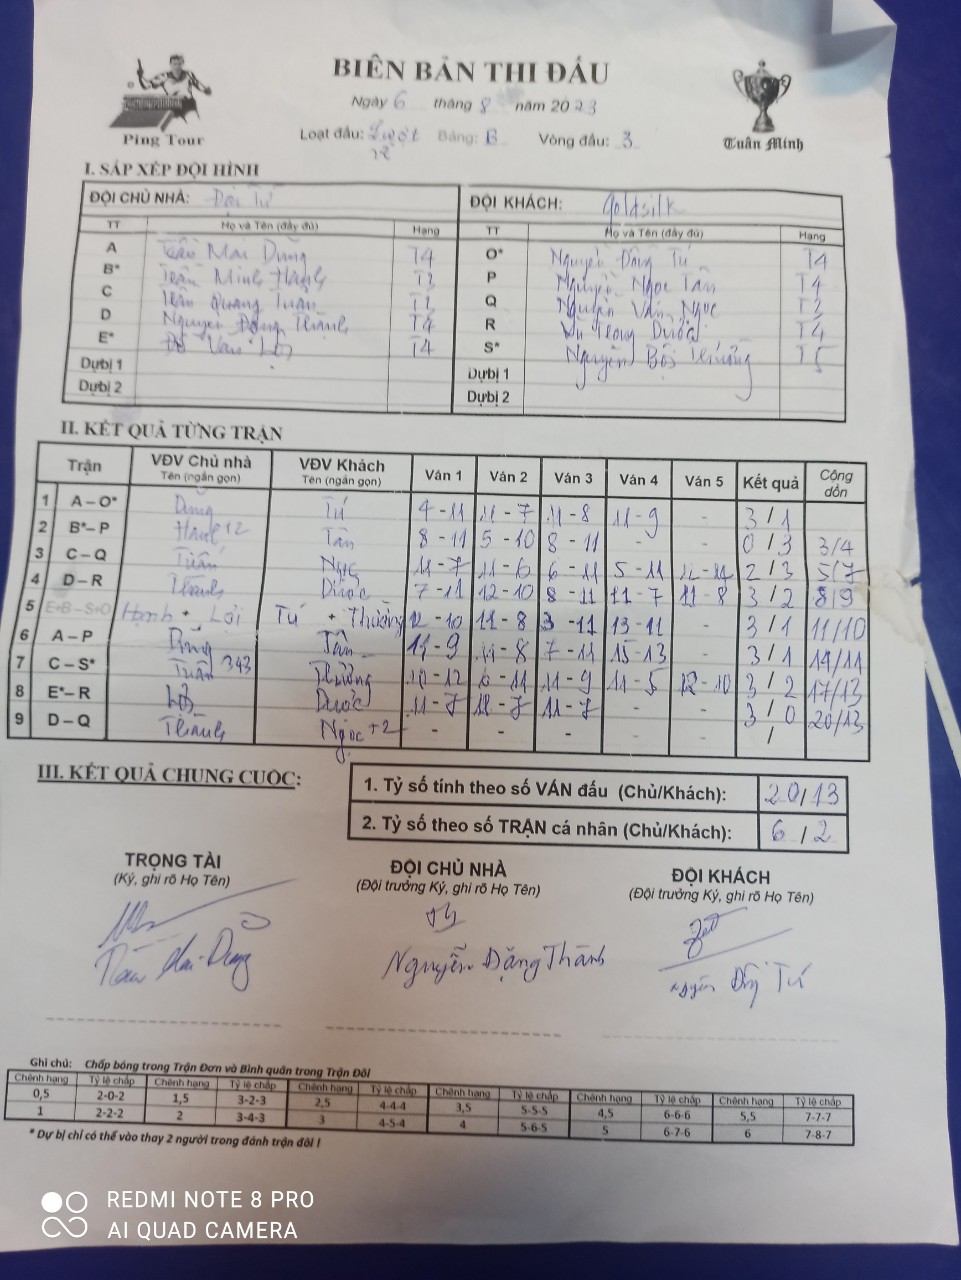 BIÊN BẢN THI ĐẤU
Ngày 6 tháng 8 năm 2023
Ping Tour
Loạt đấu: Lượt về Bảng: B Vòng đấu: 3
Tuấn Minh
I. SẮP XẾP ĐỘI HÌNH
ĐỘI CHỦ NHÀ: ĐỘI KHÁCH: Goldsilk
TT Họ và Tên (đầy đủ) Hạng TT Họ và Tên (đầy đủ) Hạng
A Trần Mai Dũng T4 O* Nguyễn Đồng Tú T4
B* Trần Minh Hạnh T3 P Nguyễn Ngọc Tân T4
C Trần Quang Tuấn Q Nguyễn Văn Ngọc
D Nguyễn Đặng Thành T4 R Trọng Dược T4
E* Đỗ Văn Lợi T4 S* Nguyễn Thưởng T5
Dự bị 1 Dự bị 1
Dự bị 2 Dự bị 2
II. KẾT QUẢ TỪNG TRẬN
Trận VĐV Chủ nhà VĐV Khách Ván 1 Ván 2 Ván 3 Ván 4 Ván 5 Kết quả Cộng dồn
Tên (ngắn gọn) Tên (ngắn gọn)
1 A – O* Dũng Tú 4 - 11 11 - 7 11 - 8 11 - 9 - 3 / 1
2 B* – P Hạnh +2 Tân 8 - 11 5 - 10 8 - 11 - - 0 / 3 3/4
3 C – Q Tuấn Ngọc 11 - 7 11 - 6 6 - 11 5 - 11 12 - 14 2 / 3 5/7
4 D – R Thành Dược 7 - 11 12 - 10 8 - 11 11 - 7 11 - 8 3 / 2 8/9
5 E+B – S+O Hạnh + Lợi Tú + Thưởng 12 - 10 11 - 8 3 - 11 13 - 11 3 / 1 11/10
6 A – P Dũng Tân 11 - 9 11 - 8 7 - 11 15 - 13 3 / 1 14/11
7 C – S* Tuấn 343 Thưởng 10 - 12 6 - 11 11 - 9 11 - 5 12 - 10 3 / 2 17/13
8 E* – R Lợi Dược 11 - 7 11 - 7 11 - 7 - - 3 / 0 20/13
9 D – Q Thành Ngọc +2 - - - - - /
III. KẾT QUẢ CHUNG CUỘC:
1. Tỷ số tính theo số VÁN đấu (Chủ/Khách): 20/13
2. Tỷ số theo số TRẬN cá nhân (Chủ/Khách): 6/2
TRỌNG TÀI ĐỘI CHỦ NHÀ ĐỘI KHÁCH
(Ký, ghi rõ Họ Tên) (Đội trưởng Ký, ghi rõ Họ Tên) (Đội trưởng Ký, ghi rõ Họ Tên)
Trần Mai Dũng Nguyễn Đặng Thành Nguyễn Đồng Tú
Ghi chú: Chấp bóng trong Trận Đơn và Bình quân trong Trận Đôi
Chênh hạng Tỷ lệ chấp Chênh hạng Tỷ lệ chấp Chênh hạng Tỷ lệ chấp Chênh hạng Tỷ lệ chấp Chênh hạng Tỷ lệ chấp Chênh hạng Tỷ lệ chấp
0,5 2-0-2 1,5 3-2-3 2,5 4-4-4 3,5 5-5-5 4,5 6-6-6 5,5 7-7-7
1 2-2-2 2 3-4-3 3 4-5-4 4 5-6-5 5 6-7-6 6 7-8-7
* Dự bị chỉ có thể vào thay 2 người trong đánh trận đôi !
REDMI NOTE 8 PRO
AI QUAD CAMERA